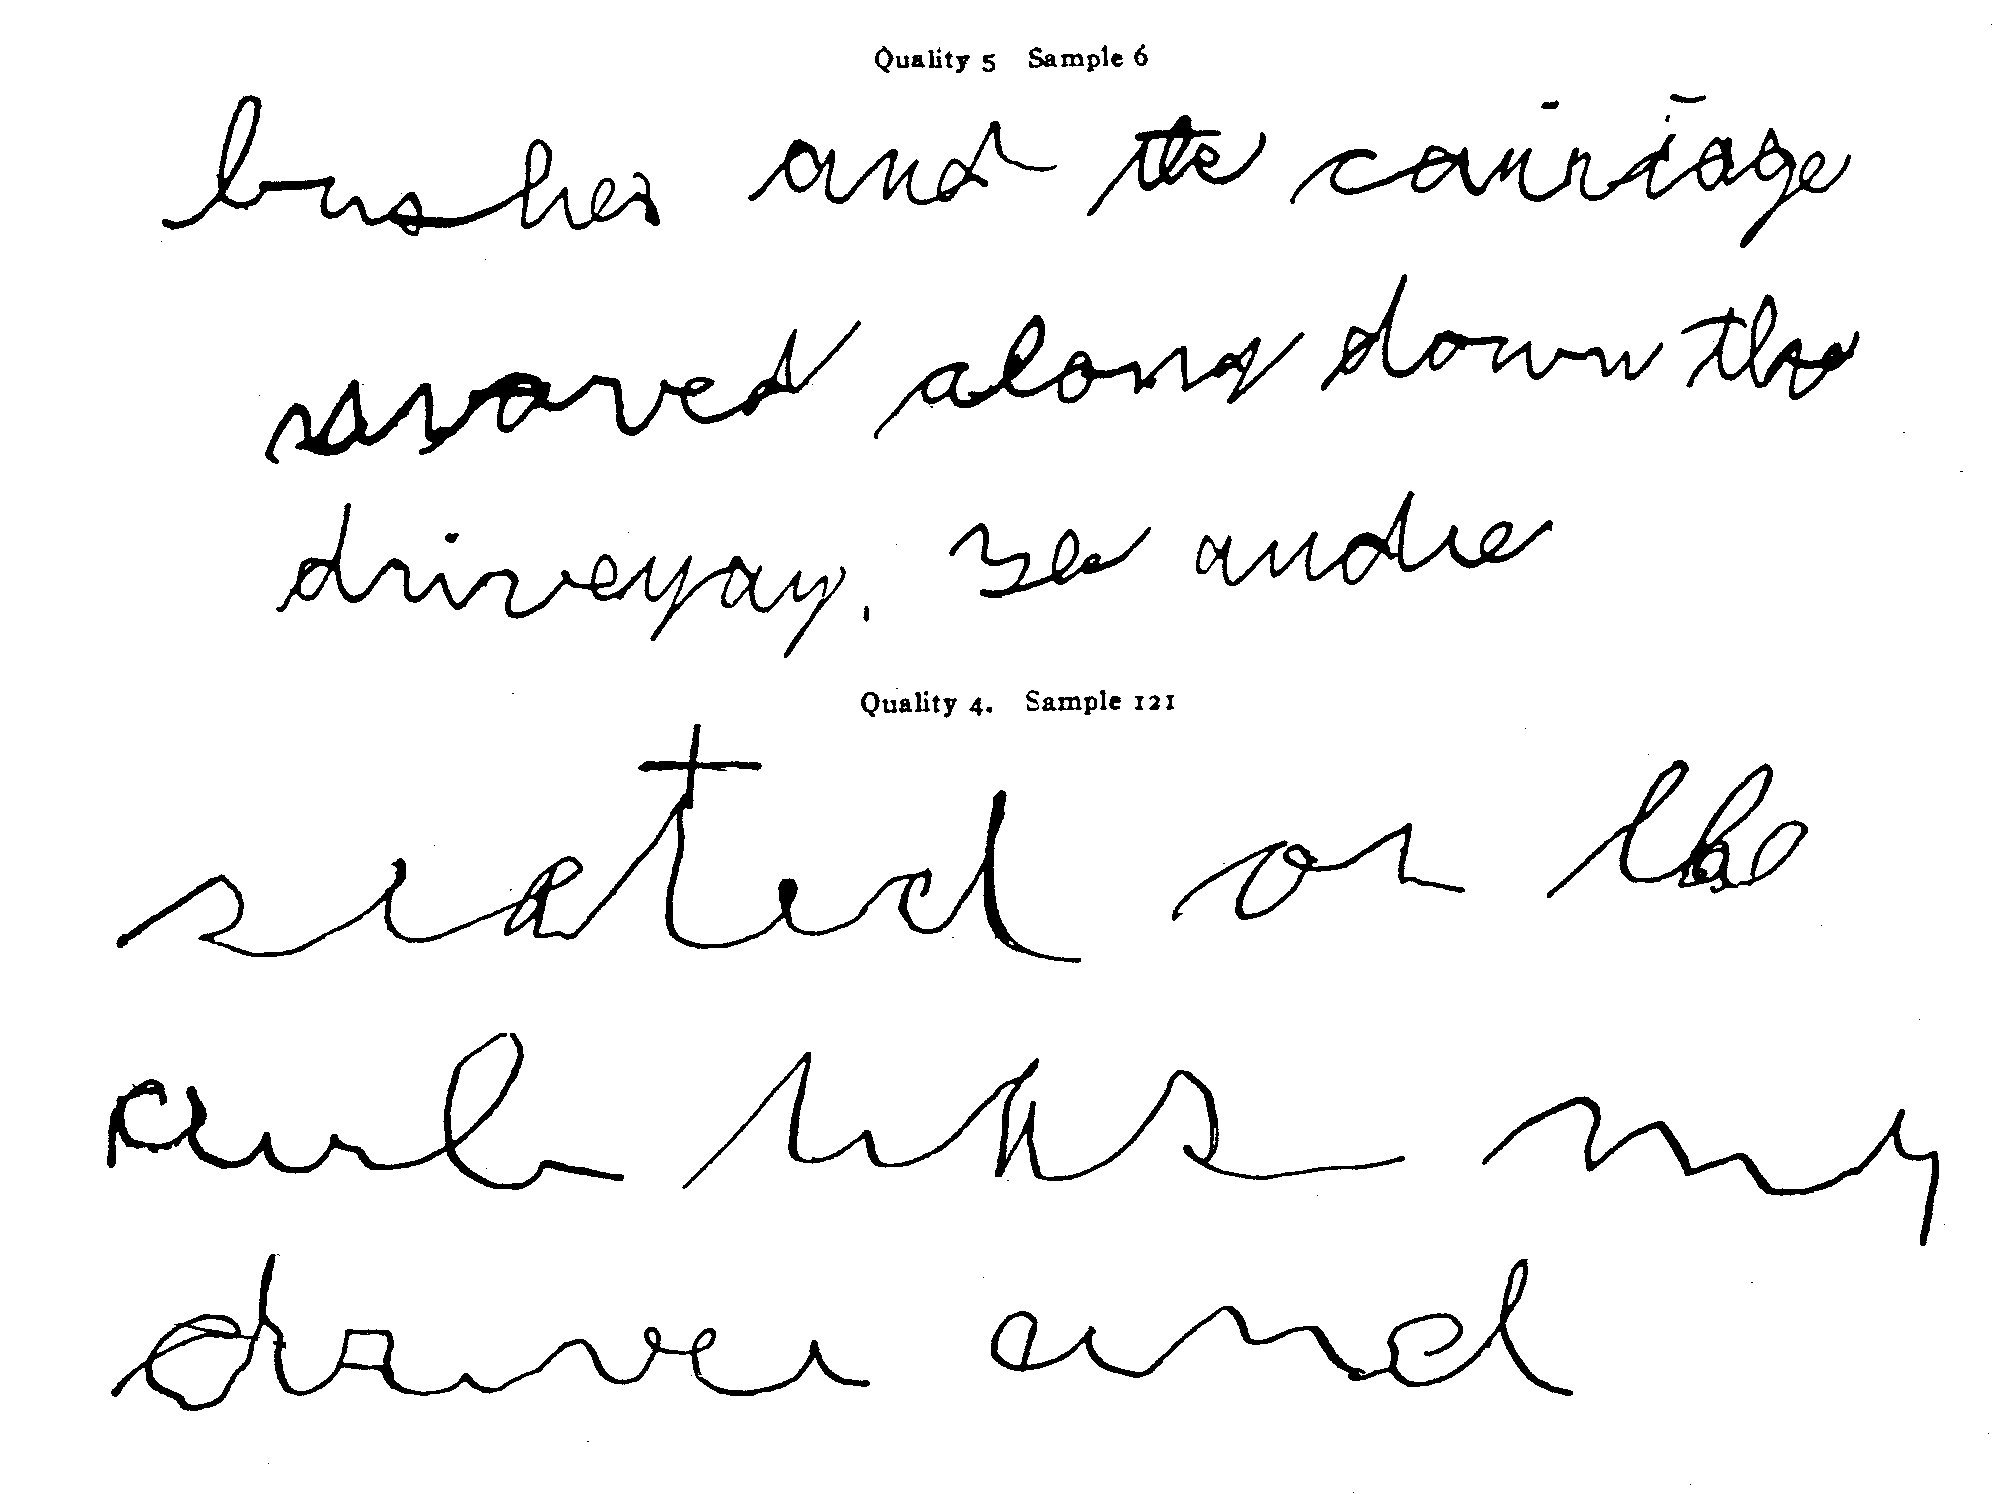 Quality 5 Sample 6
bushes and the carriage
moved along down the
driveyay. The audie
Quality 4. Sample 121
seated on the
curb was my
driver and